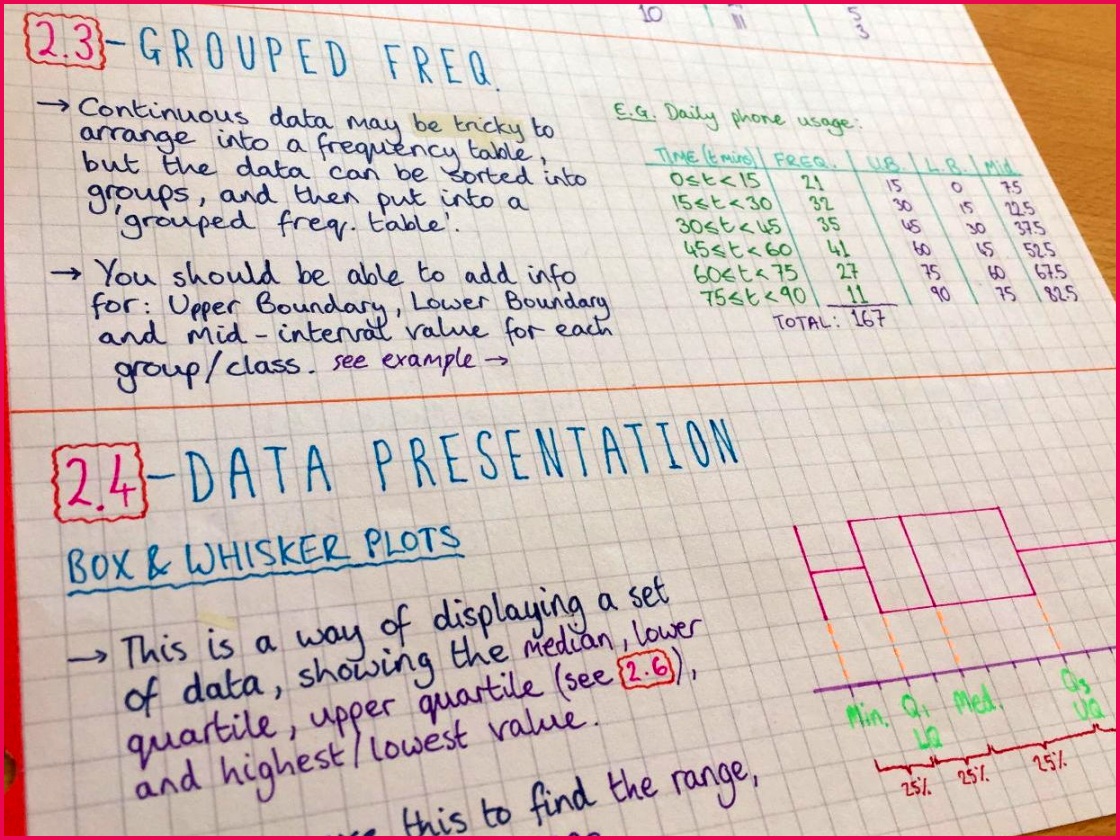 10 5
3
2.3 - GROUPED FREQ.
→ Continuous data may be tricky to
arrange into a frequency table,
but the data can be sorted into
groups, and then put into a
'grouped freq. table'.
→ You should be able to add info
for: Upper Boundary, Lower Boundary
and mid-interval value for each
group/class. see example →
E.G. Daily phone usage:
TIME (t mins) FREQ. U.B L.B. Mid
0≤t<15 21 15 0 7.5
15≤t<30 32 30 15 22.5
30≤t<45 35 45 30 37.5
45≤t<60 41 60 45 52.5
60≤t<75 27 75 60 67.5
75≤t<90 11 90 75 82.5
TOTAL: 167
2.4 - DATA PRESENTATION
BOX & WHISKER PLOTS
→ This is a way of displaying a set
of data, showing the median, lower
quartile, upper quartile (see 2.6),
and highest/lowest value.
this to find the range,
Min. Q1 Med. Q3
LQ UQ
25% 25% 25%